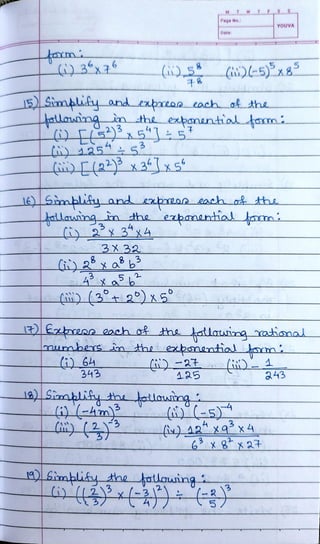 M T W T F S S
Page No.:
YOUVA
Date:
form:
(i) 3⁶x7⁶ (ii) 5⁸/7⁸ (iii) (-5)⁵x8⁵
15) Simplify and express each of the
following in the exponential form:
(i) [(5²)³ x 5⁴] ÷ 5⁷
(ii) 125⁴ ÷ 5³
(iii) [(2²)³ x 3⁶] x 5⁶
16) Simplify and express each of the
following in the exponential form:
(i) 2³ x 3⁴ x 4
3 x 32
(ii) 2⁸ x a⁸ b³
4³ x a⁵ b²
(iii) (3⁰ + 2⁰) x 5⁰
17) Express each of the following rational
numbers in the exponential form:
(i) 64/343 (ii) -27/125 (iii) -1/243
18) Simplify the following:
(i) (-4m)³ (ii) (-5)⁻⁴
(iii) (2/3)⁻³ (iv) 12⁴ x 9³ x 4
6³ x 8² x 27
19) Simplify the following:
(i) ((2/3)³ x (-3/4)²) ÷ (-2/5)³